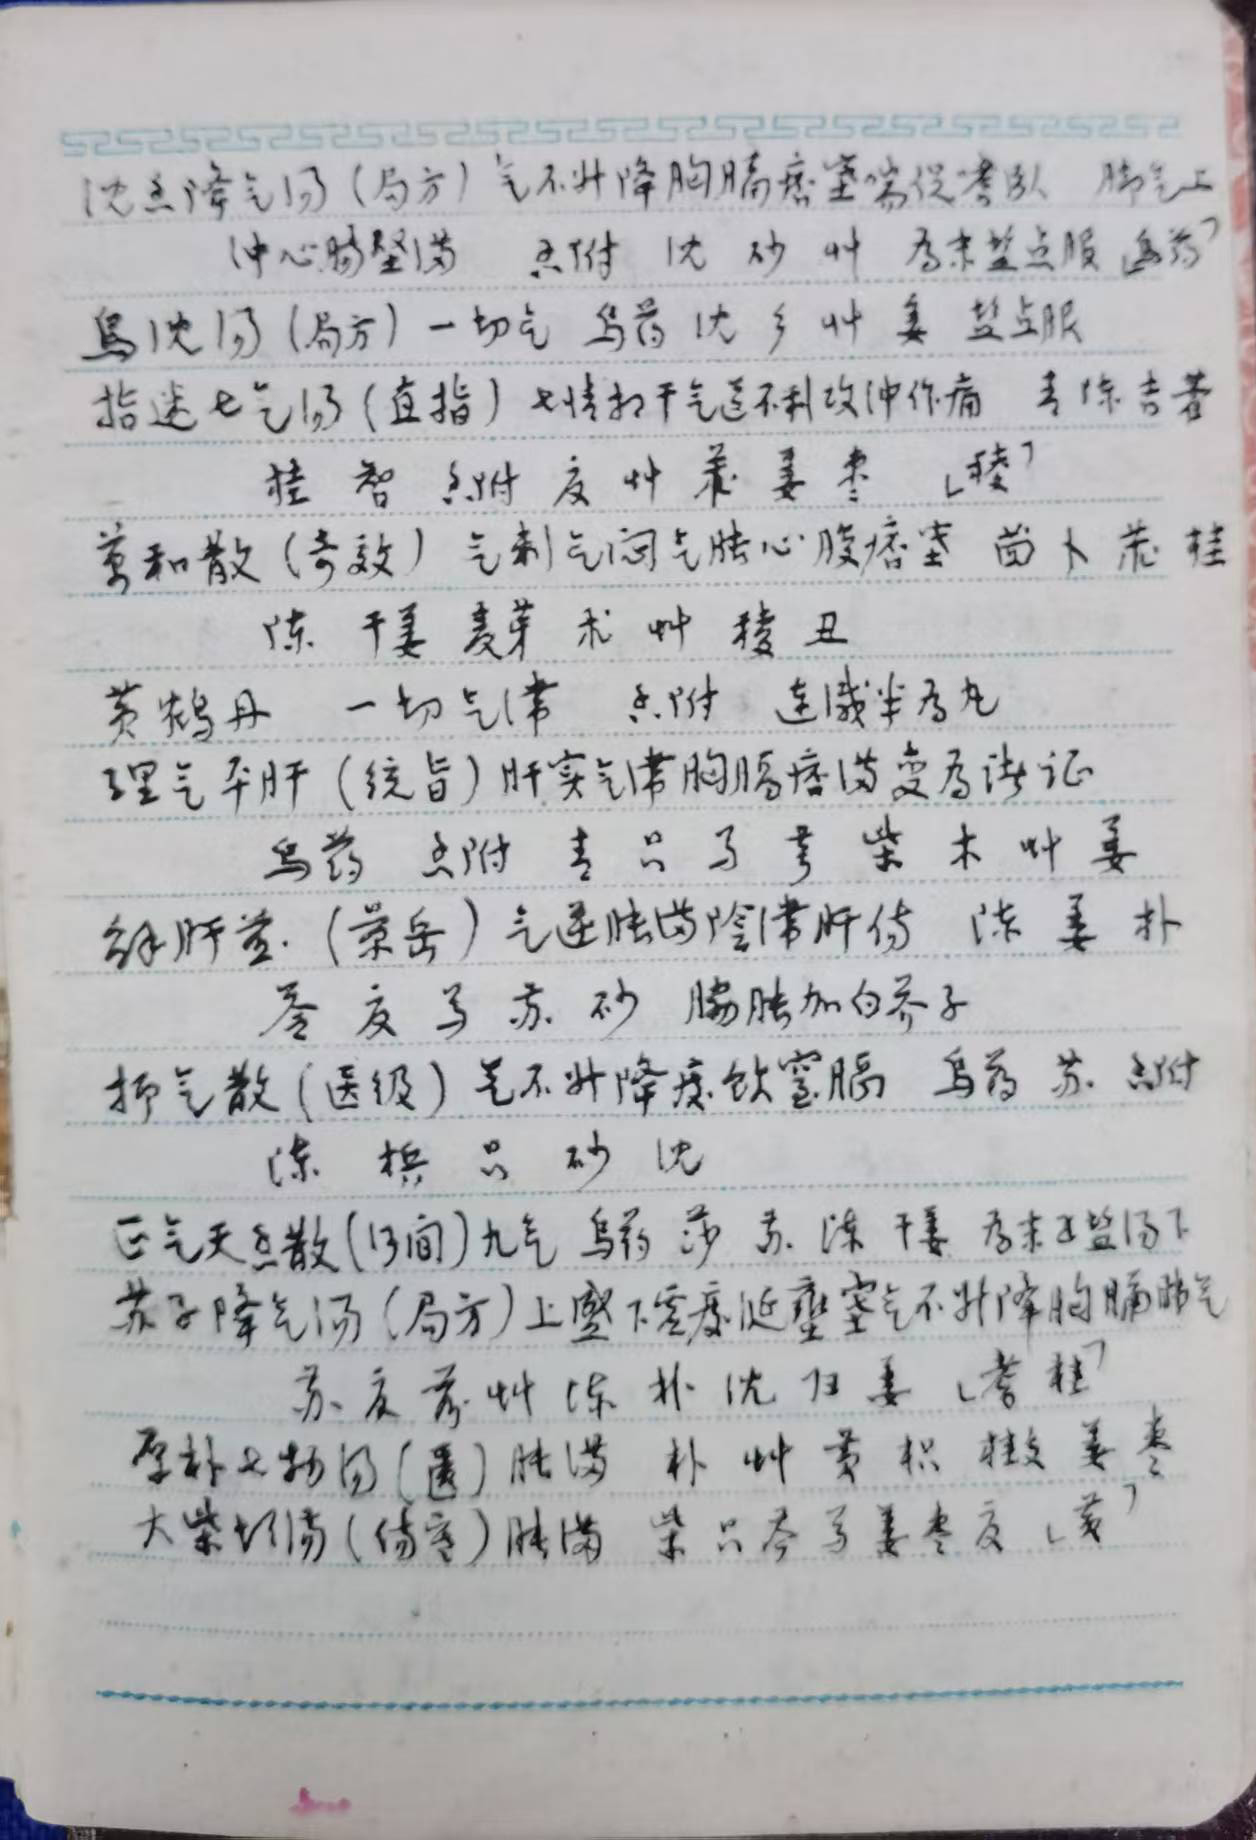 沈香降气汤(局方)气不升降胸膈痞塞喘促嗜卧 脚气上
冲心腸坚满 香附 沈 砂 艸 为末盐点服 乌药
乌沈汤(局方)一切气 乌药 沈 艸 姜 盐点服
指迷七气汤(直指)七情相干气道不利攻冲作痛 青陈吉
桂 智 香附 夏 艸 莪 姜 枣 「棱」
万和散(奇效)气刺气闷气胀心腹痞塞 茴 卜 莪 桂
陈 干姜 麦芽 术 艸 棱 丑
黄鹤丹 一切气滞 香附 连减半为丸
理气平肝(统旨)肝实气滞胸膈痞满变为诸证
乌药 香附 青 只 芍 芎 柴 木 艸 姜
解肝煎(景岳)气逆胀满陰滞肝伤 陈 姜 朴
苓 夏 芍 苏 砂 脇胀加白芥子
抑气散(医级)气不升降痰饮窒膈 乌药 苏 香附
陈 槟 只 砂 沈
正气天香散(河间)九气 乌药 莎 苏 陈 干姜 为末盐汤下
苏子降气汤(局方)上盛下虚痰涎壅塞气不升降胸膈肺气
苏 夏 前 艸 陈 朴 沈 归 姜 「蓍 桂」
厚朴七物汤(匮)胀满 朴 艸 黄 枳 桂 姜 枣
大柴胡汤(伤寒)胀满 柴 只 芩 芍 姜 枣 夏 「黄」